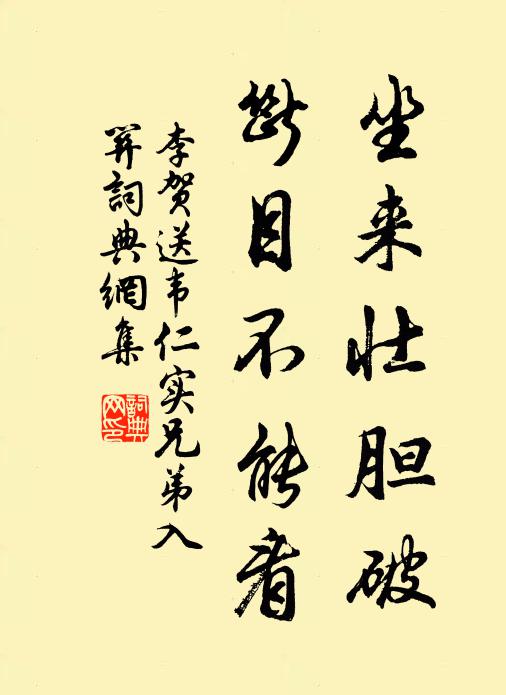 坐来壮胆破
断目不能看
李贺送韦仁实兄弟入
关詞典網集
詞典网印